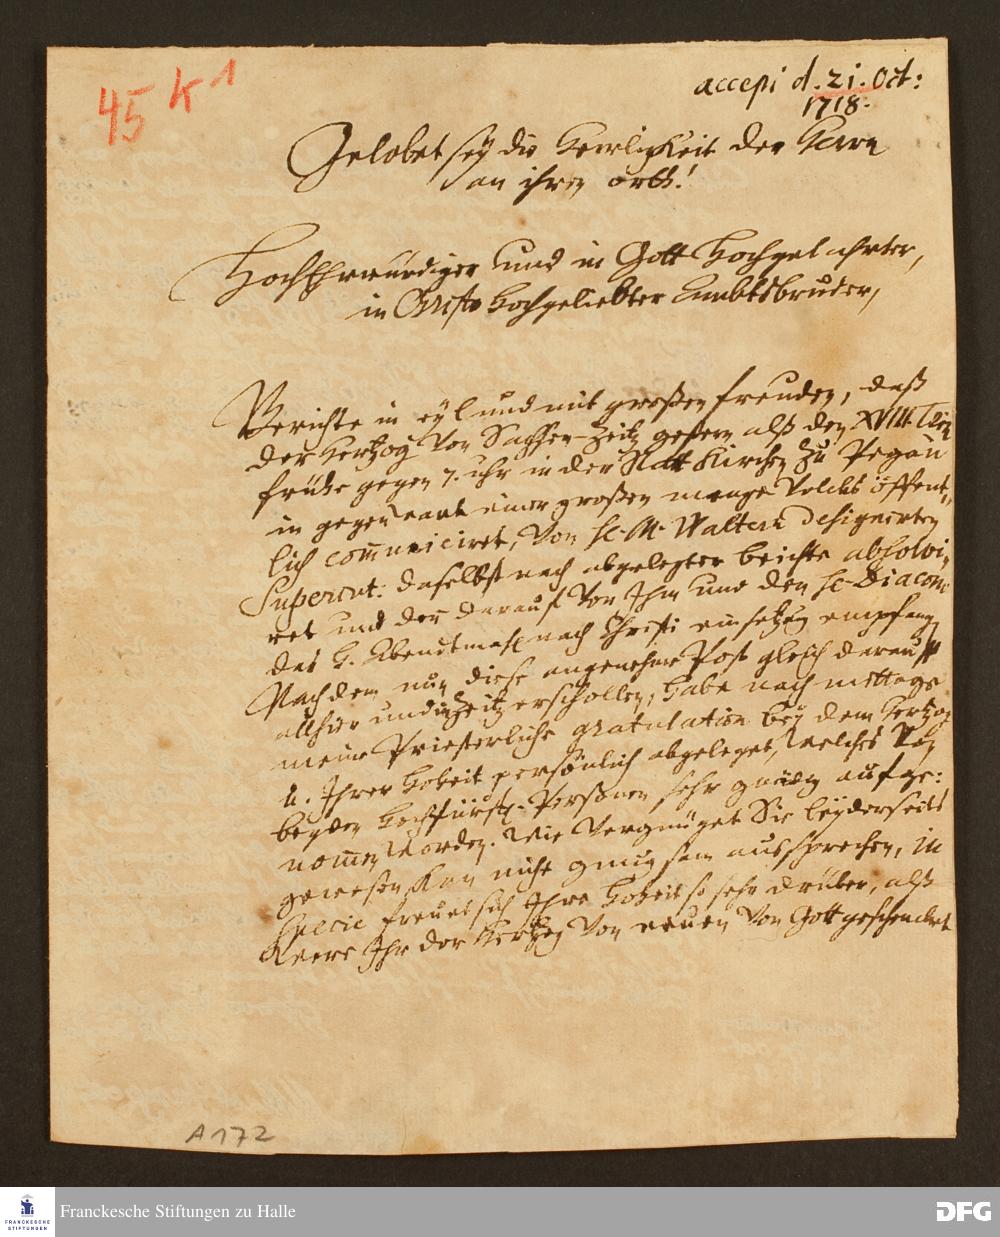 45 K 1
accepi d. 21. Oct:
1718.
Gelobet sey die Herrligkeit des Herrn
an ihren orth!
HochEhrwürdiger und in Gott Hochgelahrter,
in Christo Hochgeliebter Ambtsbruder,
Berichte in eyl und mit großen freuden, daß
der Hertzog von Sachsen-Zeitz gestern alß den XVIII. Trin
frühe gegen 7. uhr in der Statt Kirchen zu Pegau
in gegenwart einer großen menge Volcks öffent-
lich communiciret, von H. M. Waltern designirten
Superint: daselbst nach abgelegter beichte absolvi-
ret und der darauf von Ihm und den H. Diacono
das H. Abendtmahl nach Christi einsetzung empfangen
Nachdem nun diese angenehme Post gleich darauff
allhier und in Zeitz erschollen, habe nach mittags
meine Priesterliche gratulation bey dem Hertzog
u. Ihrer Hoheit persönlich abgeleget, welches von
beyden Hochfürstl. Persohnen sehr gnädig aufge-
nommen worden. Wie vergnüget Sie beyderseits
gewesen, kan nicht gnugsam aussprechen, in
specie freuet sich Ihre Hoheit so sehr drüber, alß
were Ihr der Hertzog von neuen von Gott geschencket
A 172
FRANCKESCHE
STIFTUNGEN
Franckesche Stiftungen zu Halle
DFG